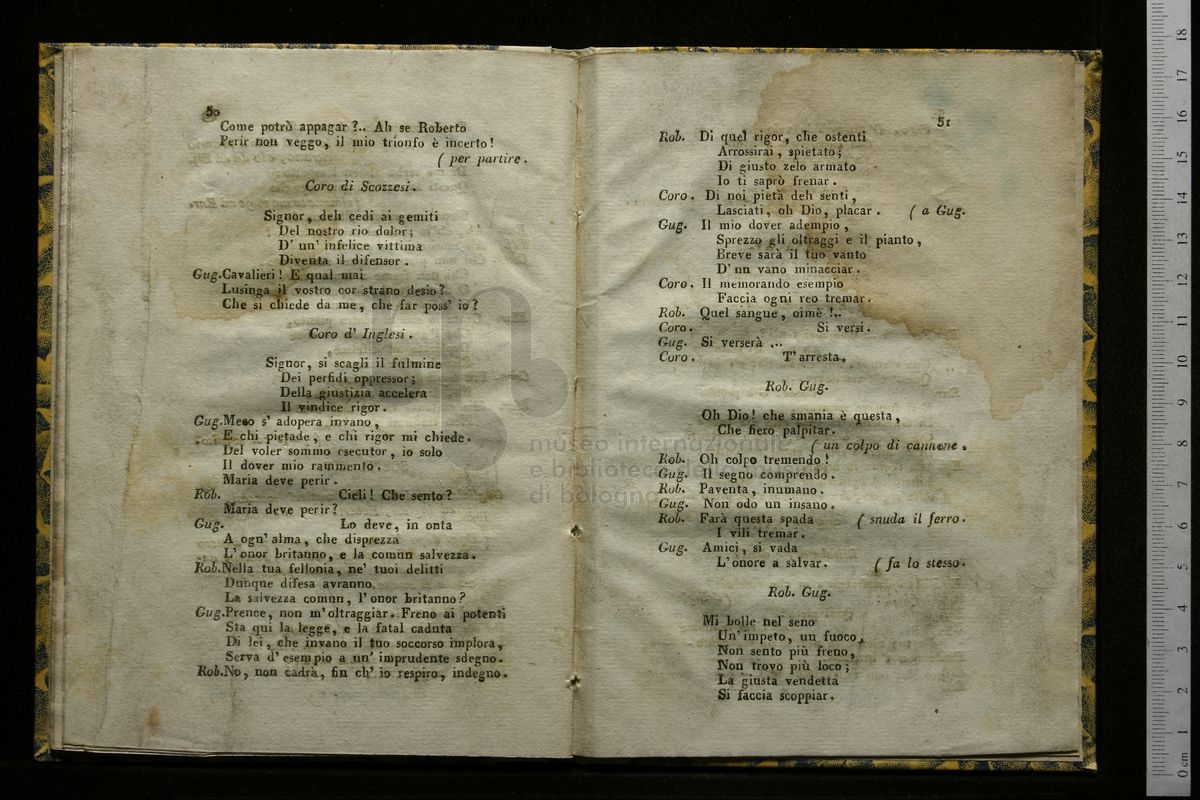 50
Come potrò appagar ?.. Ah se Roberto
Perir non veggo, il mio trionfo è incerto!
( per partire.
Coro di Scozzesi.
Signor, deh cedi ai gemiti
Del nostro rio dolor;
D' un' infelice vittima
Diventa il difensor.
Gug. Cavalieri! E qual mai
Lusinga il vostro cor strano desio?
Che si chiede da me, che far poss' io?
Coro d' Inglesi.
Signor, si scagli il fulmine
Dei perfidi oppressor;
Della giustizia accelera
Il vindice rigor.
Gug. Meco s' adopera invano,
E chi pietade, e chi rigor mi chiede.
Del voler sommo esecutor, io solo
Il dover mio rammento.
Maria deve perir.
Rob. Cieli! Che sento?
Maria deve perir?
Gug. Lo deve, in onta
A ogn' alma, che disprezza
L' onor britanno, e la comun salvezza.
Rob. Nella tua fellonia, ne' tuoi delitti
Dunque difesa avranno
La salvezza comun, l' onor britanno?
Gug. Prence, non m' oltraggiar. Freno ai potenti
Sta qui la legge, e la fatal caduta
Di lei, che invano il tuo soccorso implora,
Serva d' esempio a un' imprudente sdegno.
Rob. No, non cadrà, fin ch' io respiro, indegno.
51
Rob. Di quel rigor, che ostenti
Arrossirai, spietato;
Di giusto zelo armato
Io ti saprò frenar.
Coro. Di noi pietà deh senti,
Lasciati, oh Dio, placar. ( a Gug.
Gug. Il mio dover adempio,
Sprezzo gli oltraggi e il pianto,
Breve sarà il tuo vanto
D' un vano minacciar.
Coro. Il memorando esempio
Faccia ogni reo tremar.
Rob. Quel sangue, oimè !..
Coro. Si versi.
Gug. Si verserà ...
Coro. T' arresta.
Rob. Gug.
Oh Dio! che smania è questa,
Che fiero palpitar.
( un colpo di cannone.
Rob. Oh colpo tremendo!
Gug. Il segno comprendo.
Rob. Paventa, inumano.
Gug. Non odo un insano.
Rob. Farà questa spada ( snuda il ferro.
I vili tremar.
Gug. Amici, si vada
L' onore a salvar. ( fa lo stesso.
Rob. Gug.
Mi bolle nel seno
Un' impeto, un fuoco,
Non sento più freno,
Non trovo più loco;
La giusta vendetta
Si faccia scoppiar.
museo internazionale
e biblioteca della
di bologna
0 cm 1 2 3 4 5 6 7 8 9 10 11 12 13 14 15 16 17 18